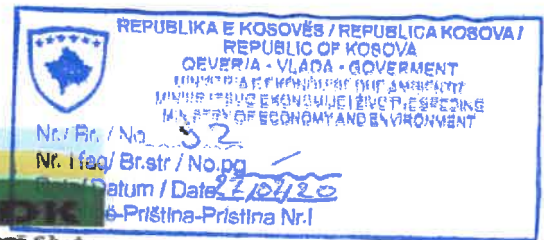 REPUBLIKA E KOSOVËS / REPUBLICA KOSOVA /
REPUBLIC OF KOSOVA
QEVERIA - VLADA - GOVERMENT
MINISTRIA E EKONOMISË DHE AMBIENTIT
MINISTRY OF ECONOMY AND ENVIRONMENT
Nr./ Rr. / No 32
Nr. i faq/ Br.str / No.pg
Datum / Date 27/02/20
Priština-Pristina Nr.I
DK